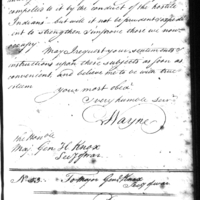 compelled to it by the conduct of the hostile
Indians? but will it not be prudent & expedi-
ent to strengthen & improve those we now
occupy
May I request your sentiments &
instructions upon these subjects as soon as
convenient, and believe me to be with true
esteem
Your most obed.
& very humble Serv.
A Wayne
The Honble
Maj. Genl. H Knox
Secy of war
No. Major Genl Knox
Secy of war